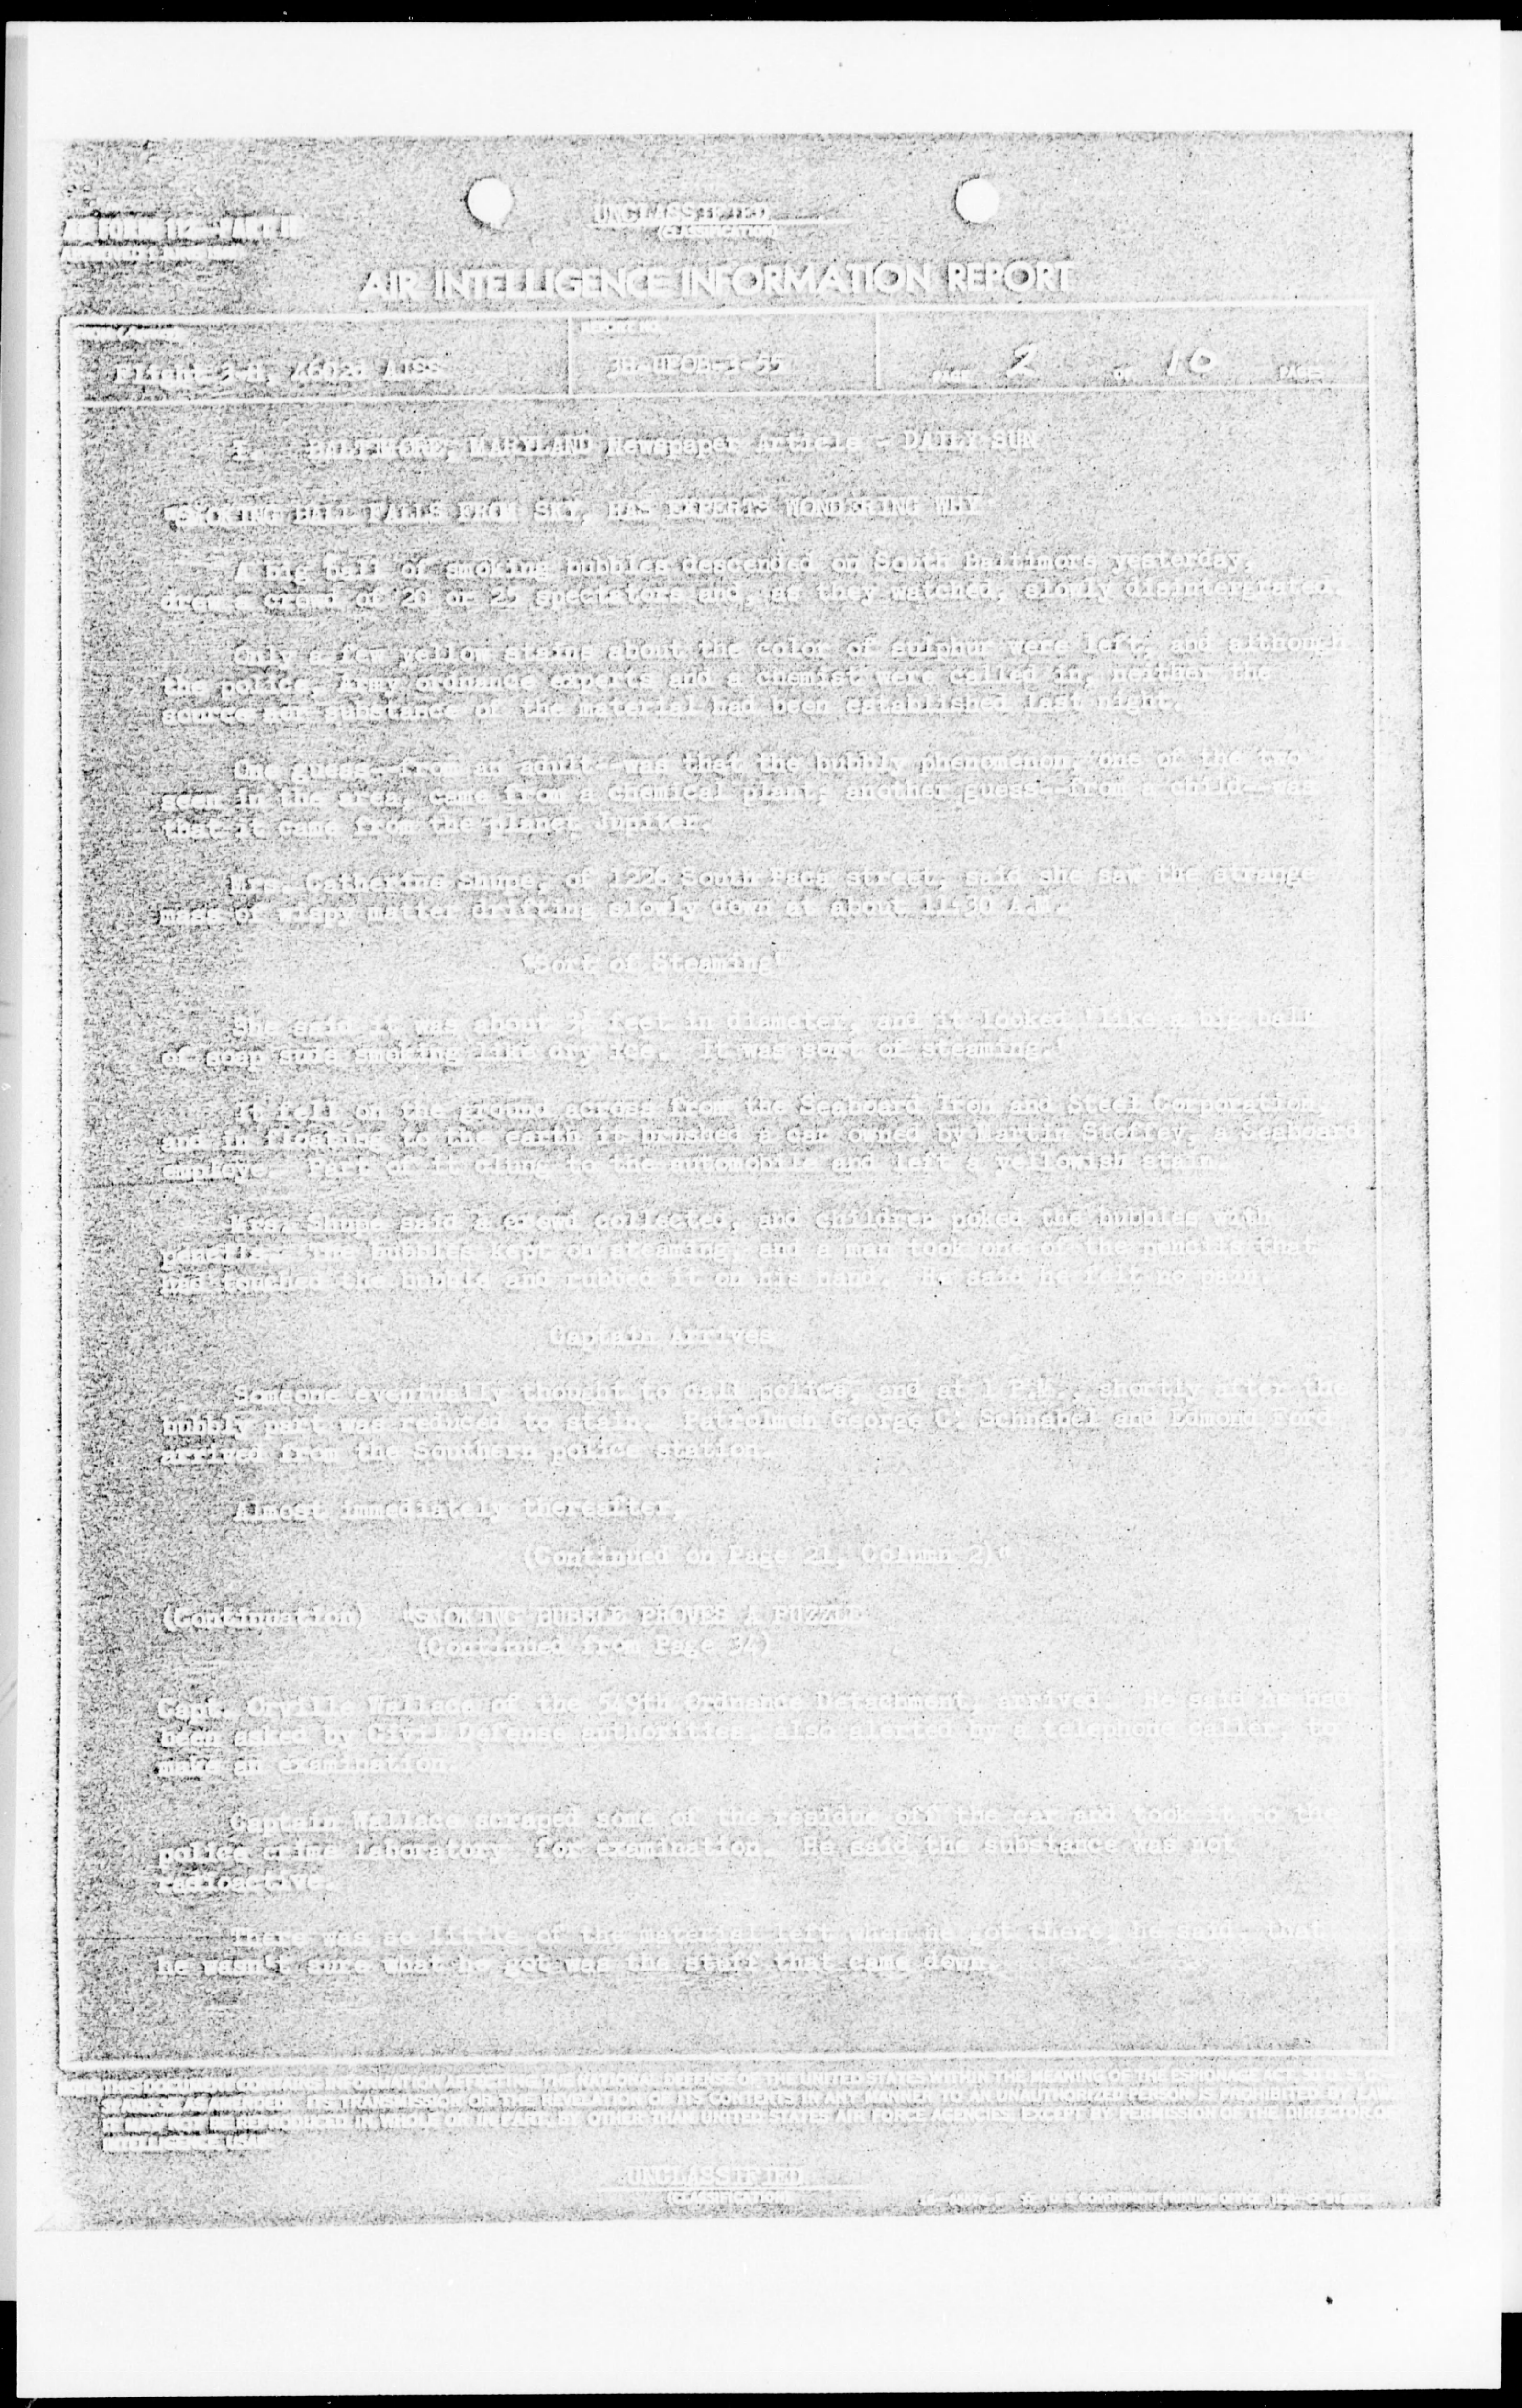 UNCLASSIFIED
(CLASSIFICATION)
AF FORM 112—PART II
AIR INTELLIGENCE INFORMATION REPORT
REPORT NO.
Flight 3-H, 4602d AISS
3H-UFOB-3-55
PAGE 2 OF 10 PAGES
1. BALTIMORE, MARYLAND Newspaper Article - DAILY SUN
"SMOKING BALL FALLS FROM SKY, HAS EXPERTS WONDERING WHY
A big ball of smoking bubbles descended on South Baltimore yesterday,
drew a crowd of 20 or 25 spectators and, as they watched, slowly disintergrated.
Only a few yellow stains about the color of sulphur were left, and although
the police, Army ordnance experts and a chemist were called in, neither the
source nor substance of the material had been established last night.
One guess--from an adult--was that the bubbly phenomenon, one of the two
seen in the area, came from a chemical plant; another guess--from a child--was
that it came from the planet Jupiter.
Mrs. Catherine Shupe, of 1226 South Paca street, said she saw the strange
mass of wispy matter drifting slowly down at about 11:30 A.M.
'Sort of Steaming'
She said it was about feet in diameter, and it looked 'like a big ball
of soap suds smoking like dry ice. It was sort of steaming.'
It fell on the ground across from the Seaboard Iron and Steel Corporation,
and in floating to the earth it brushed a car owned by Martin Steffey, a Seaboard
employe. Part of it clung to the automobile and left a yellowish stain.
Mrs. Shupe said a crowd collected, and children poked the bubbles with
pencils. The bubbles kept on steaming, and a man took one of the pencils that
had touched the bubble and rubbed it on his hand. He said he felt no pain.
Captain Arrives
Someone eventually thought to call police, and at 1 P.M., shortly after the
bubbly part was reduced to stain, Patrolmen George C. Schnabel and Edmond Ford
arrived from the Southern police station.
Almost immediately thereafter,
(Continued on Page 21, Column 2)"
(Continuation) "SMOKING BUBBLE PROVES A PUZZLE
(Continued from Page 34)
Capt. Orville Wallace of the 549th Ordnance Detachment, arrived. He said he had
been asked by Civil Defense authorities, also alerted by a telephone caller, to
make an examination.
Captain Wallace scraped some of the residue off the car and took it to the
police crime laboratory for examination. He said the substance was not
radioactive.
There was so little of the material left when he got there, he said, that
he wasn't sure what he got was the stuff that came down.
THIS DOCUMENT CONTAINS INFORMATION AFFECTING THE NATIONAL DEFENSE OF THE UNITED STATES WITHIN THE MEANING OF THE ESPIONAGE ACT, 50 U.S.C.
ITS TRANSMISSION OR THE REVELATION OF ITS CONTENTS IN ANY MANNER TO AN UNAUTHORIZED PERSON IS PROHIBITED BY LAW.
IT MAY NOT BE REPRODUCED IN WHOLE OR IN PART, BY OTHER THAN UNITED STATES AIR FORCE AGENCIES, EXCEPT BY PERMISSION OF THE DIRECTOR OF
INTELLIGENCE, USAF.
UNCLASSIFIED
(CLASSIFICATION)